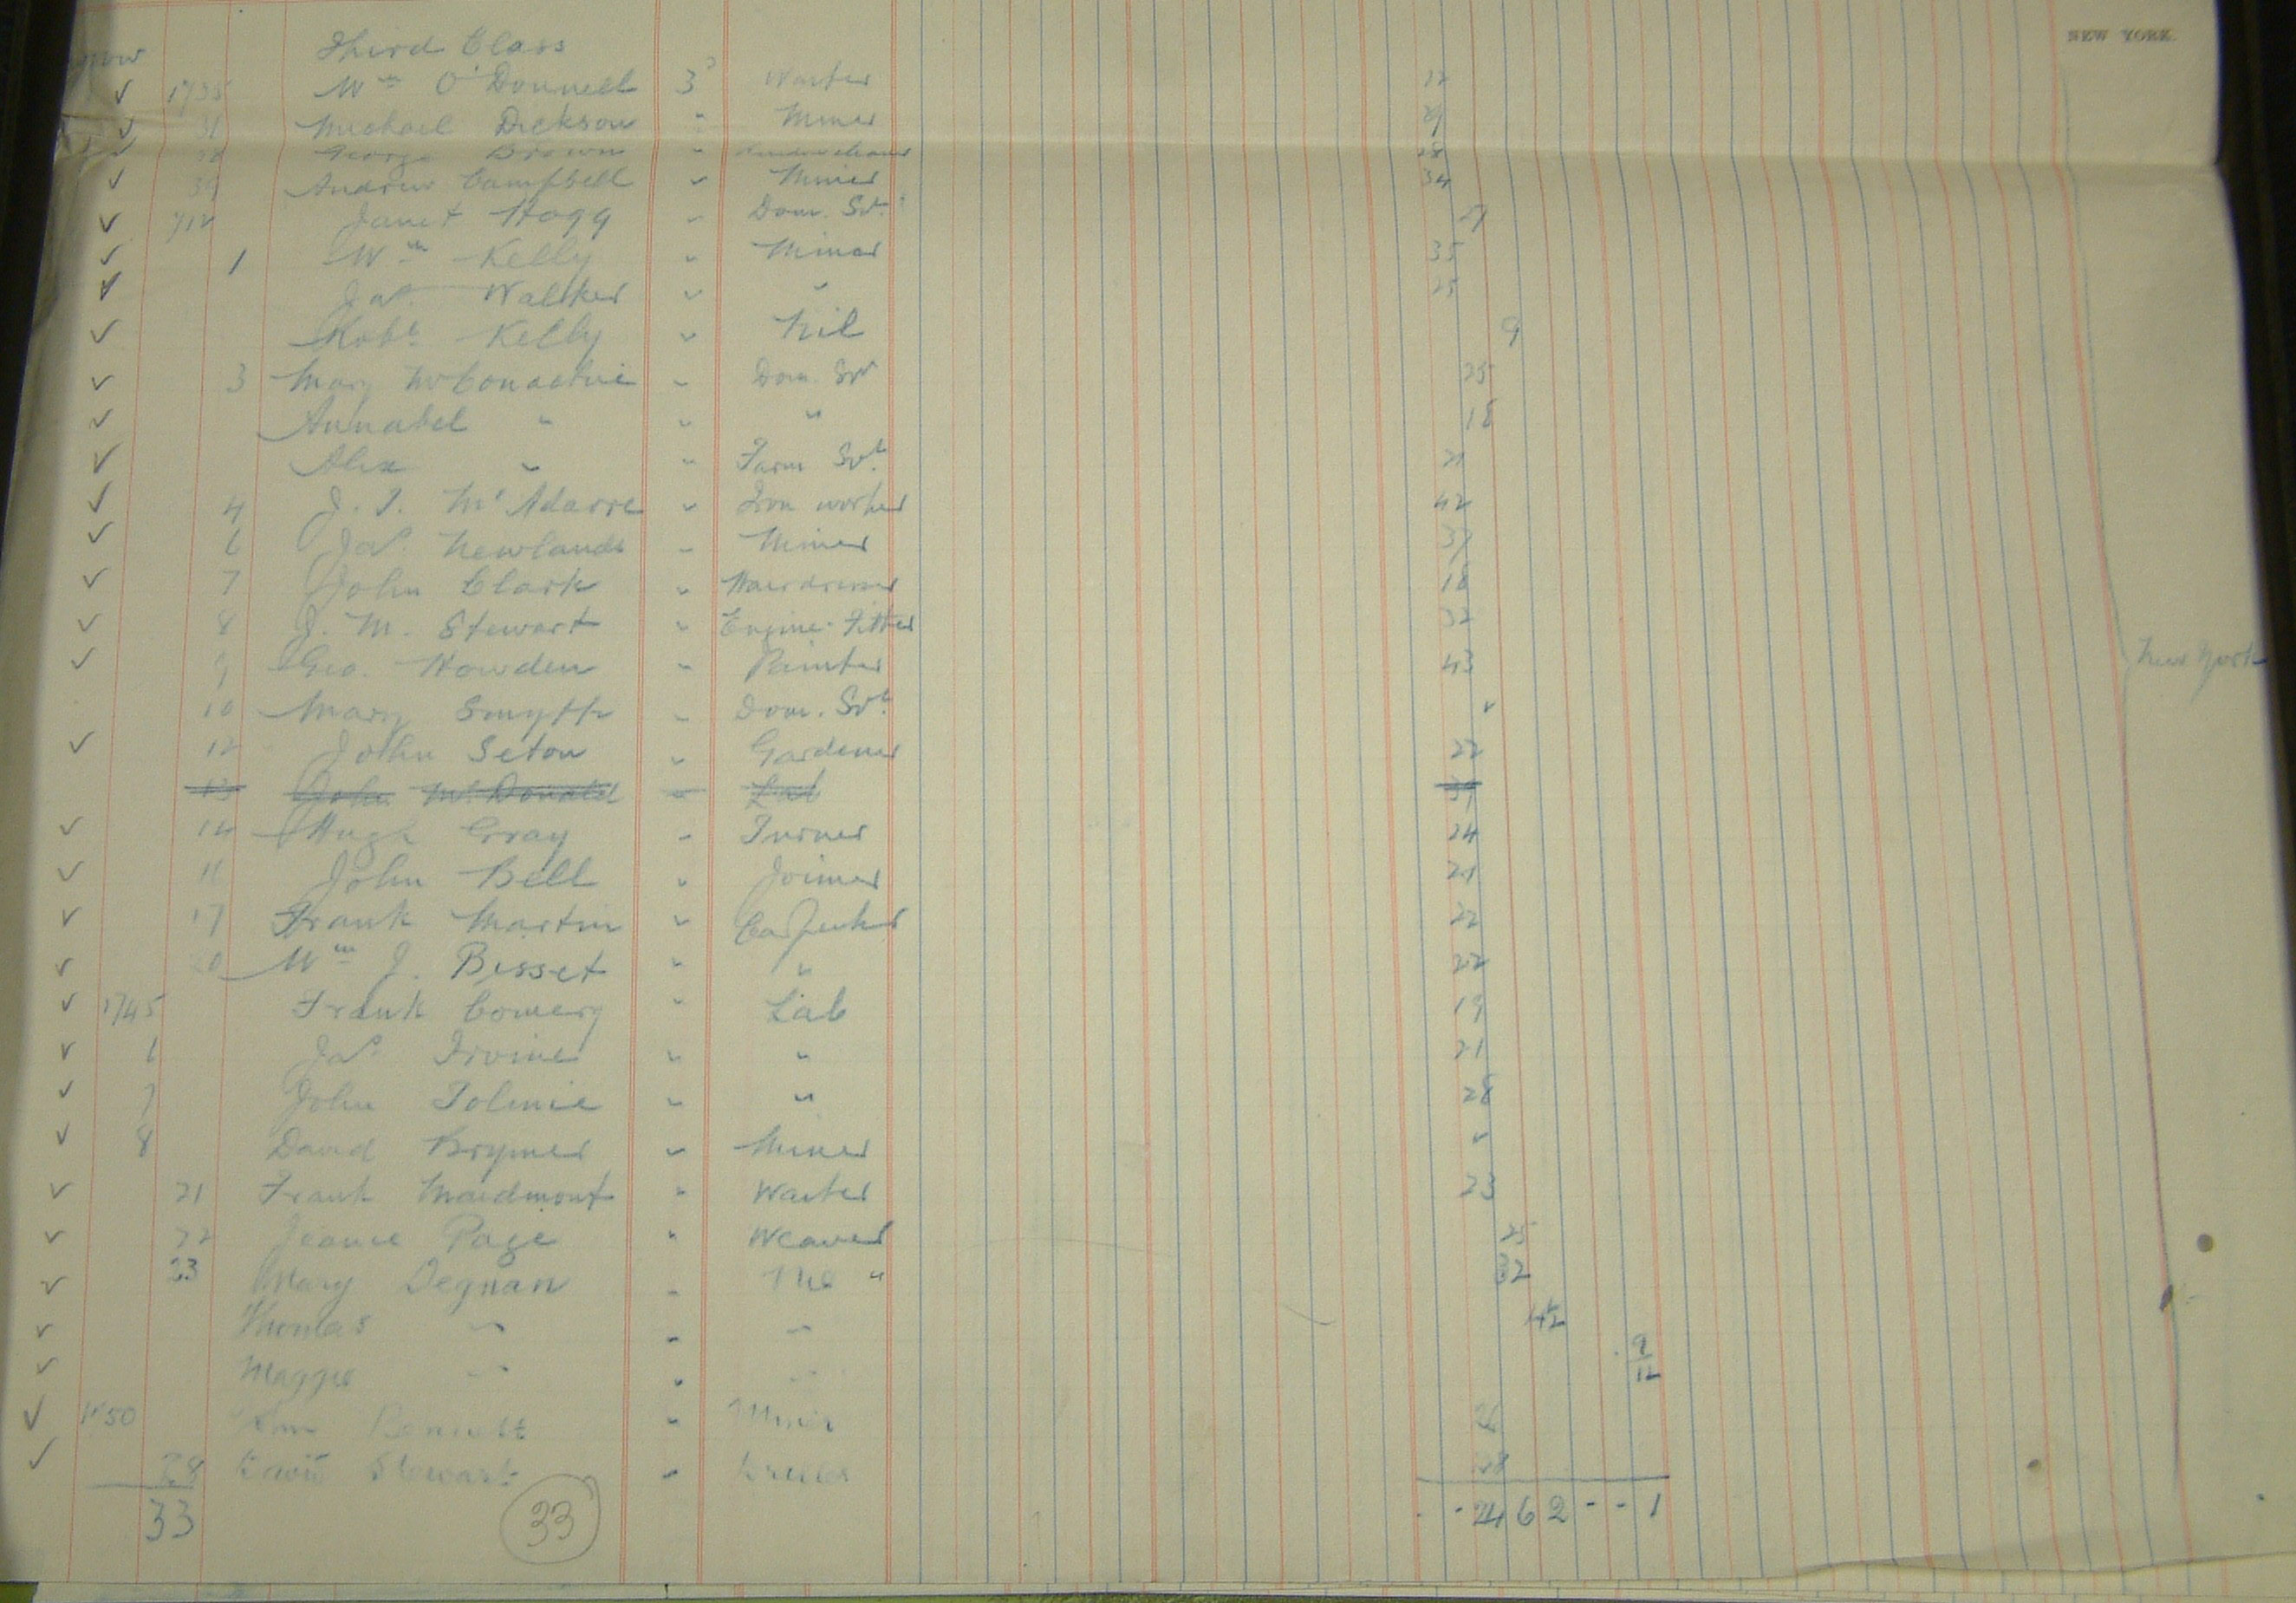 NEW YORK.
Third Class
✓ 1735 Wm O'Donnell 3 Waiter
✓ Michael Dickson " Miner
✓ George Brown "
✓ 39 Andrew Campbell " Miner 34
✓ 712 Janet Hogg " Dom. Svt.
✓ 1 Wm Kelly " Miner 35
✓ Jas. Walker " " 25
✓ Robt. Kelly " Nil 9
✓ 3 Mary McConachie " Dom Svt 25
✓ Annabel " " " 18
✓ Alex " " Farm Svt. 21
✓ 4 J. J. McAdarre " Iron worker 42
✓ 6 Jas. Newlands " Miner 37
✓ 7 John Clark " Hairdresser 18
✓ 8 J. M. Stewart " Engine Fitter 32
✓ 9 Geo. Howden " Painter 43
New York
10 Mary Smyth " Dom. Svt. ✓
✓ 12 John Seton " Gardener 22
13 John McDonald " Lab
✓ 14 Hugh Gray " Turner 24
✓ John Bell " Joiner 21
✓ 17 Frank Martin " Carpenter 22
✓ Wm J. Bisset " " 22
✓ 1745 Frank Comery " Lab 19
✓ Jas. Irvine " " 21
✓ 7 John Tolmie " " 28
✓ 8 David Brymer " Miner ✓
✓ 21 Frank Maidmont " Waiter 23
✓ 22 Jeanie Page " Weaver 25
✓ 23 Mary Degnan " Nil " 32
✓ Thomas " " "
✓ Maggie " " " 9/12
✓ 50 Miner
✓ 28 David Stewart "
33 33 - - 24 6 2 - - 1